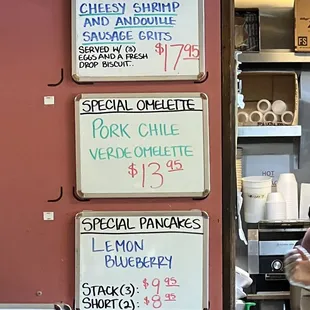 CHEESY SHRIMP
AND ANDOUILLE
SAUSAGE GRITS
SERVED W/ (3)
EGGS AND A FRESH
DROP BISCUIT..
$17.95
SPECIAL OMELETTE
PORK CHILE
VERDE OMELETTE
$13.95
SPECIAL PANCAKES
LEMON
BLUEBERRY
STACK(3): $9.95
SHORT(2): $8.95
HOT
FS